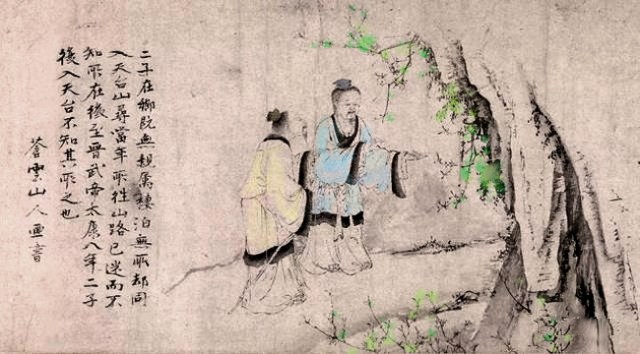 二子在鄉既無親屬棲泊無所却同
入天台山尋當年所往山路已迷而不
知所在後至晉武帝太康八年二子
復入天台不知其所之也
蒼雲山人画書